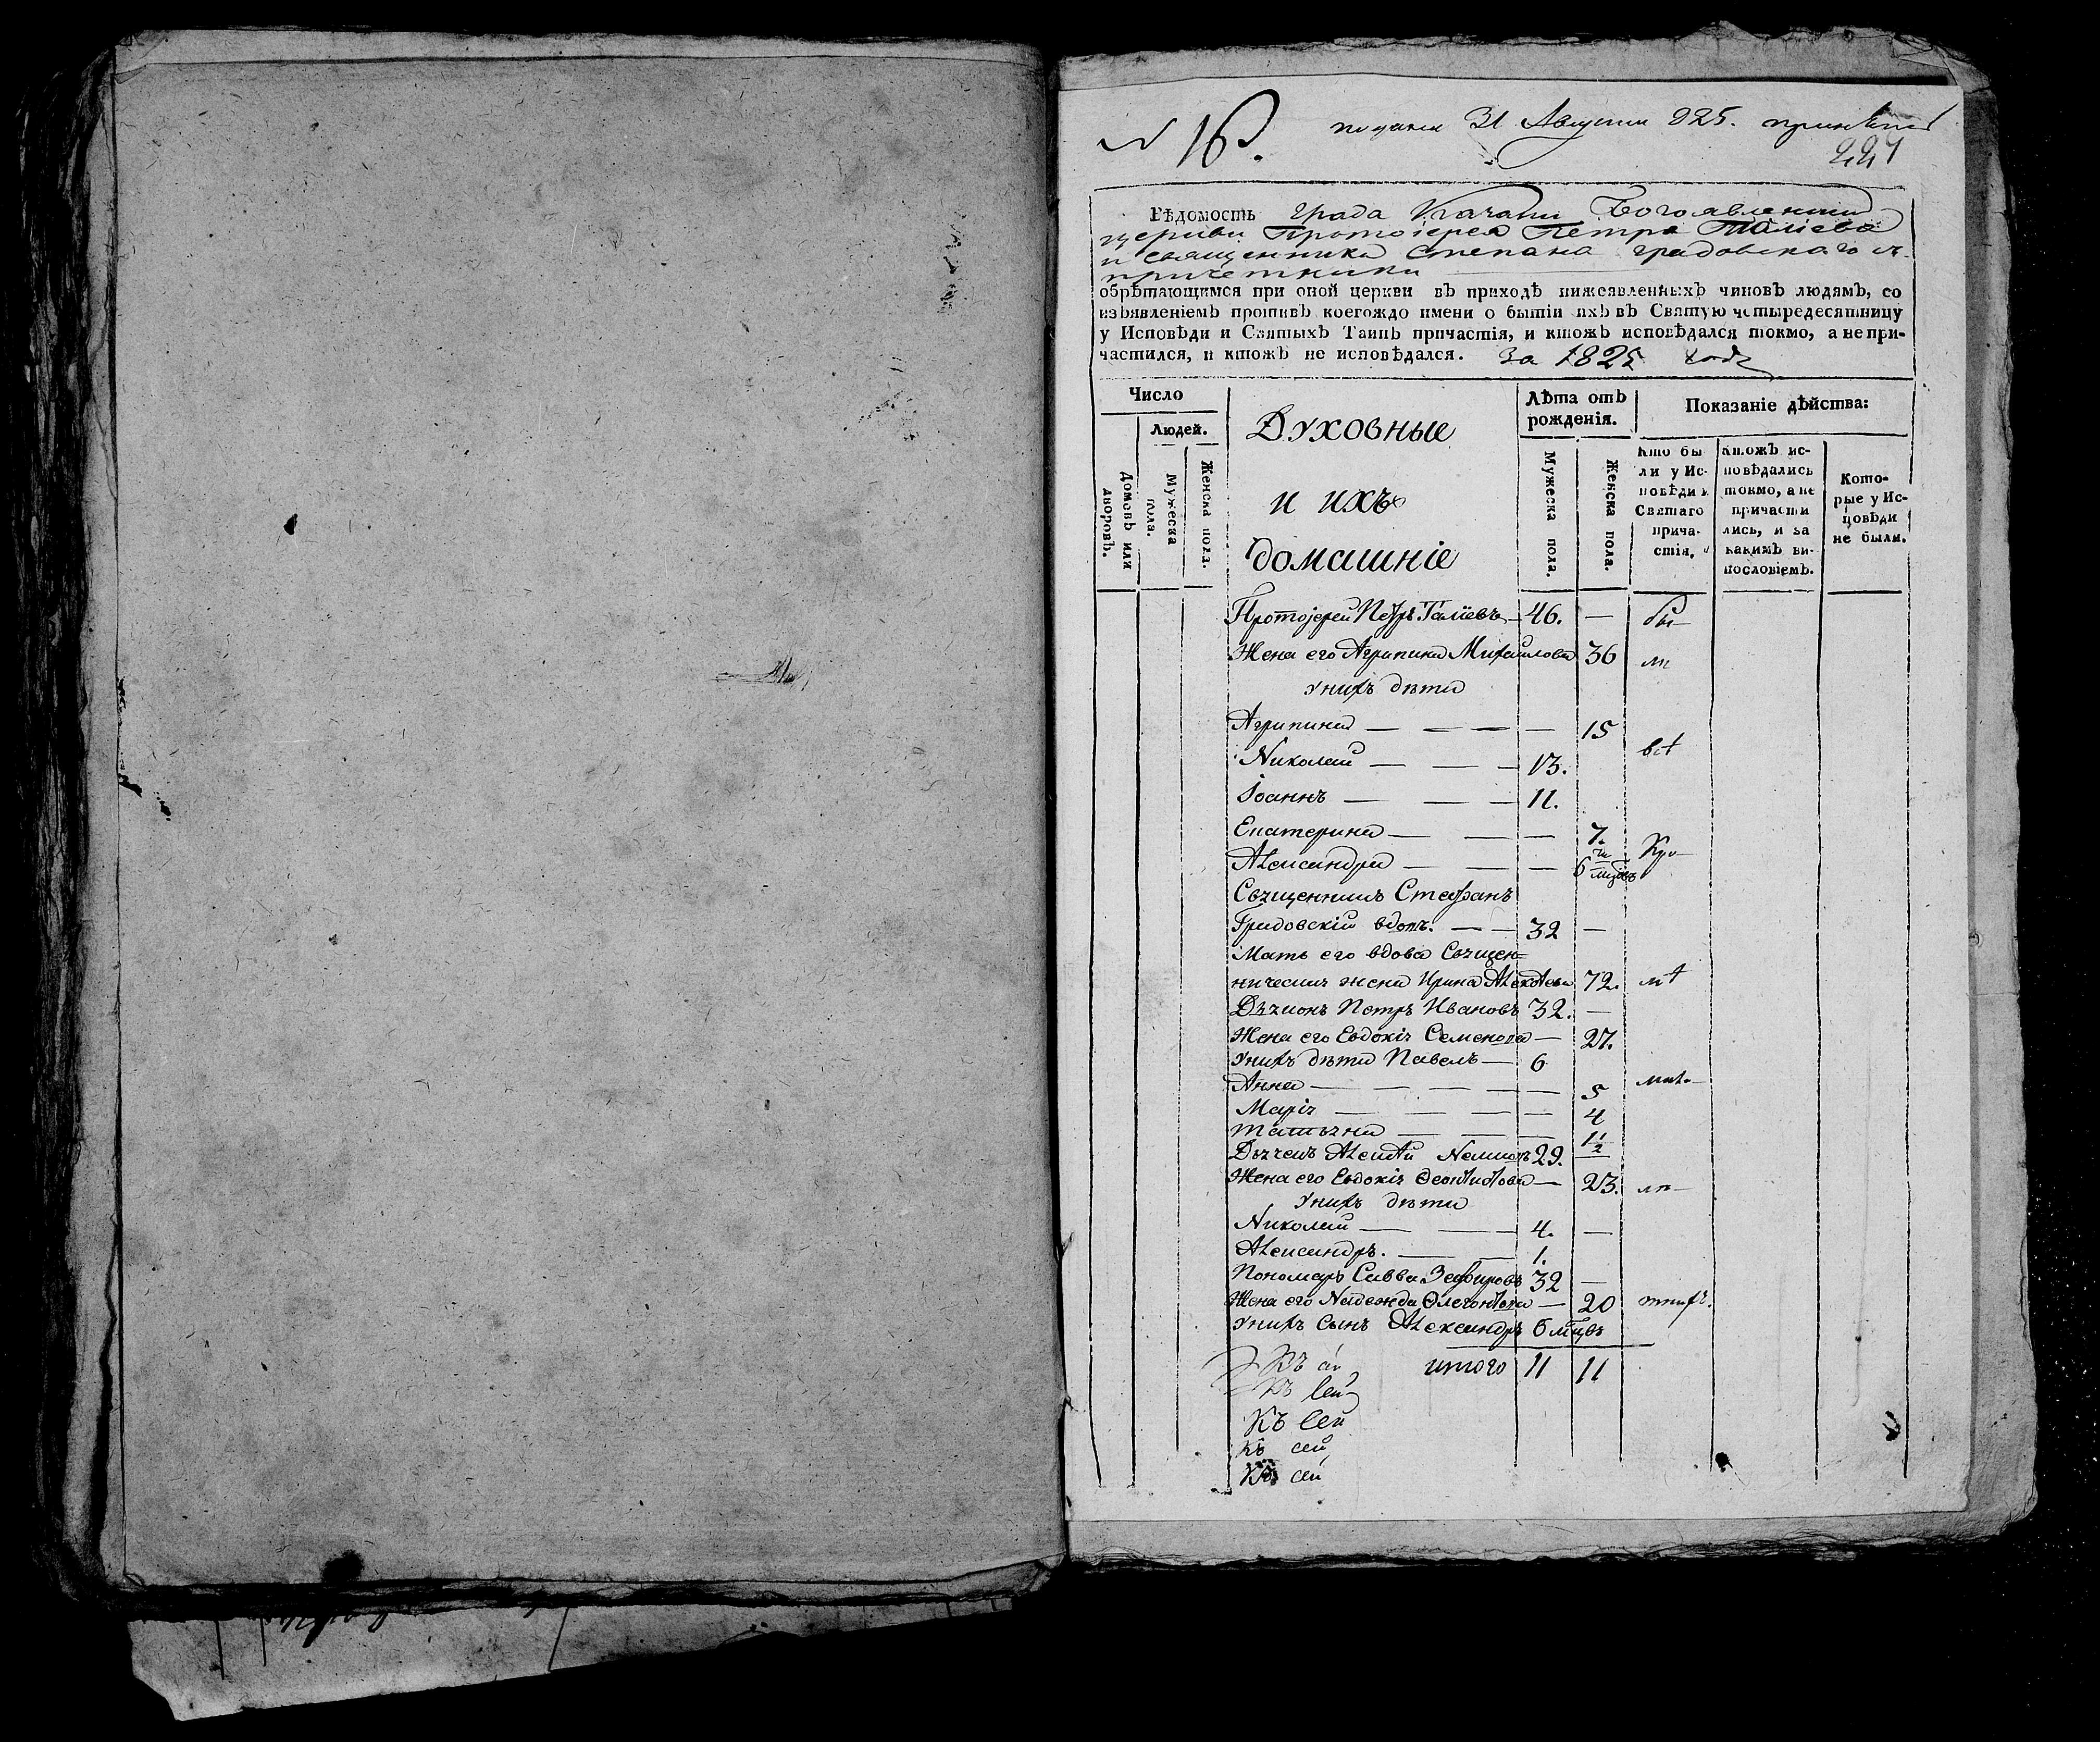 N 16.
31 Августа 825.
Вѣдомость града Богоявленской
церкви Протоіерея Петра Таліева
и священника Степана градовскаго съ
причетники
обрѣтающимся при оной церкви въ приходѣ нижеявленныхъ чиновъ людямъ, со
изъявленіемъ противъ коегождо имени о бытіи ихъ въ Святую четыредесятницу
у Исповѣди и Святыхъ Таинъ причастія, и ктожъ исповѣдался токмо, а не при-
частился, и ктожъ не исповѣдался. за 1825 годъ
Число
Людей.
Домовъ или дворовъ.
Мужеска пола.
Женска пола.
Духовные
и ихъ
домашніе
Лѣта отъ
рожденія.
Мужеска пола.
Женска пола.
Показаніе дѣйства:
Кто бы
ли у Ис-
повѣди и
Святаго
прича-
стія.
Ктожъ ис-
повѣдались
токмо, а не
причасти
лись, и за
какимъ ви-
нословіемъ.
Кото-
рые у Ис-
повѣди
не были.
Протоіерей Петръ Таліевъ — 46. — бы-
Жена его Агрипина Михаилова 36 ли
У нихъ дѣти
Агрипина — — — — 15
всѣ
Николай — — — 13.
Іоаннъ — — — 11.
Екатерина — — — 7.
Кро-
Александра — — — 6 мцовъ
Священникъ Стефанъ
Градовскій вдовъ. — — 32 —
Мать его вдова Священ=
ническая жена Ирина Алексѣева 72. мѣ
Дьяконъ Петръ Ивановъ 32. —
Жена его Евдокія Семенова — 27.
У нихъ дѣти Павелъ — 6
Анна — — — — — 5
Марія — — — — 4
Татьяна — — — 1 1/2
Дьячекъ Алексѣй 29.
Жена его Евдокія Ѳеоктистова — 23.
У нихъ дѣти
Николай — — 4. —
Александръ. — — 1.
Пономарь Савва Зефировъ 32 —
Жена его Надежда — 20
У нихъ сынъ Александръ 6 мцвъ
итого 11 11
Къ сей
Къ сей
Къ сей
Къ сей